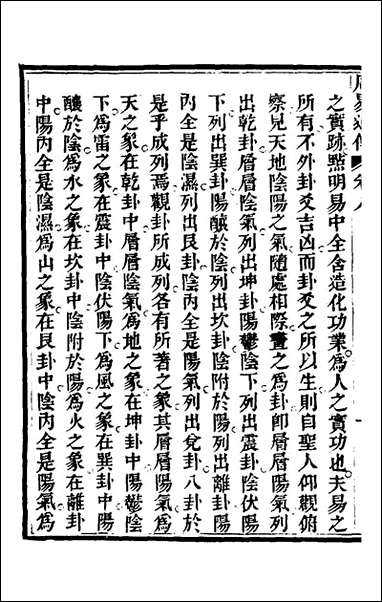 之實跡點明易中全舍造化功業爲人之實功也夫易之
所有不外卦爻吉凶而卦爻之所以生則自聖人仰觀俯
察見天地陰陽之氣隨處相際畫之爲卦卽層層陽氣列
出乾卦層層陰氣列出坤卦陽鬱陰下列出震卦陰伏陽
下列出巽卦陽釀於陰列出坎卦陰附於陽列出離卦陽
內全是陰濕列出艮卦陰內全是陽氣列出兌卦八卦於
是乎成列焉觀卦所成列各有所著之象其層層陽氣爲
天之象在乾卦中層層陰氣爲地之象在坤卦中陽鬱陰
下爲雷之象在震卦中陰伏陽下爲風之象在巽卦中陽
釀於陰爲水之象在坎卦中陰附於陽爲火之象在離卦
中陽內全是陰濕爲山之象在艮卦中陰內全是陽氣爲